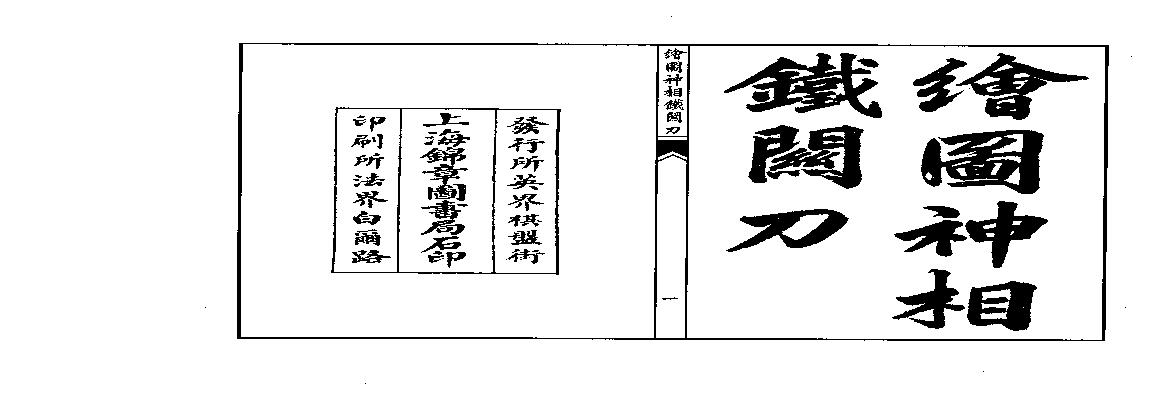 繪圖神相
鐵關刀
繪圖神相鐵關刀
一
發行所英界棋盤街
上海錦章圖書局石印
印刷所法界白爾路